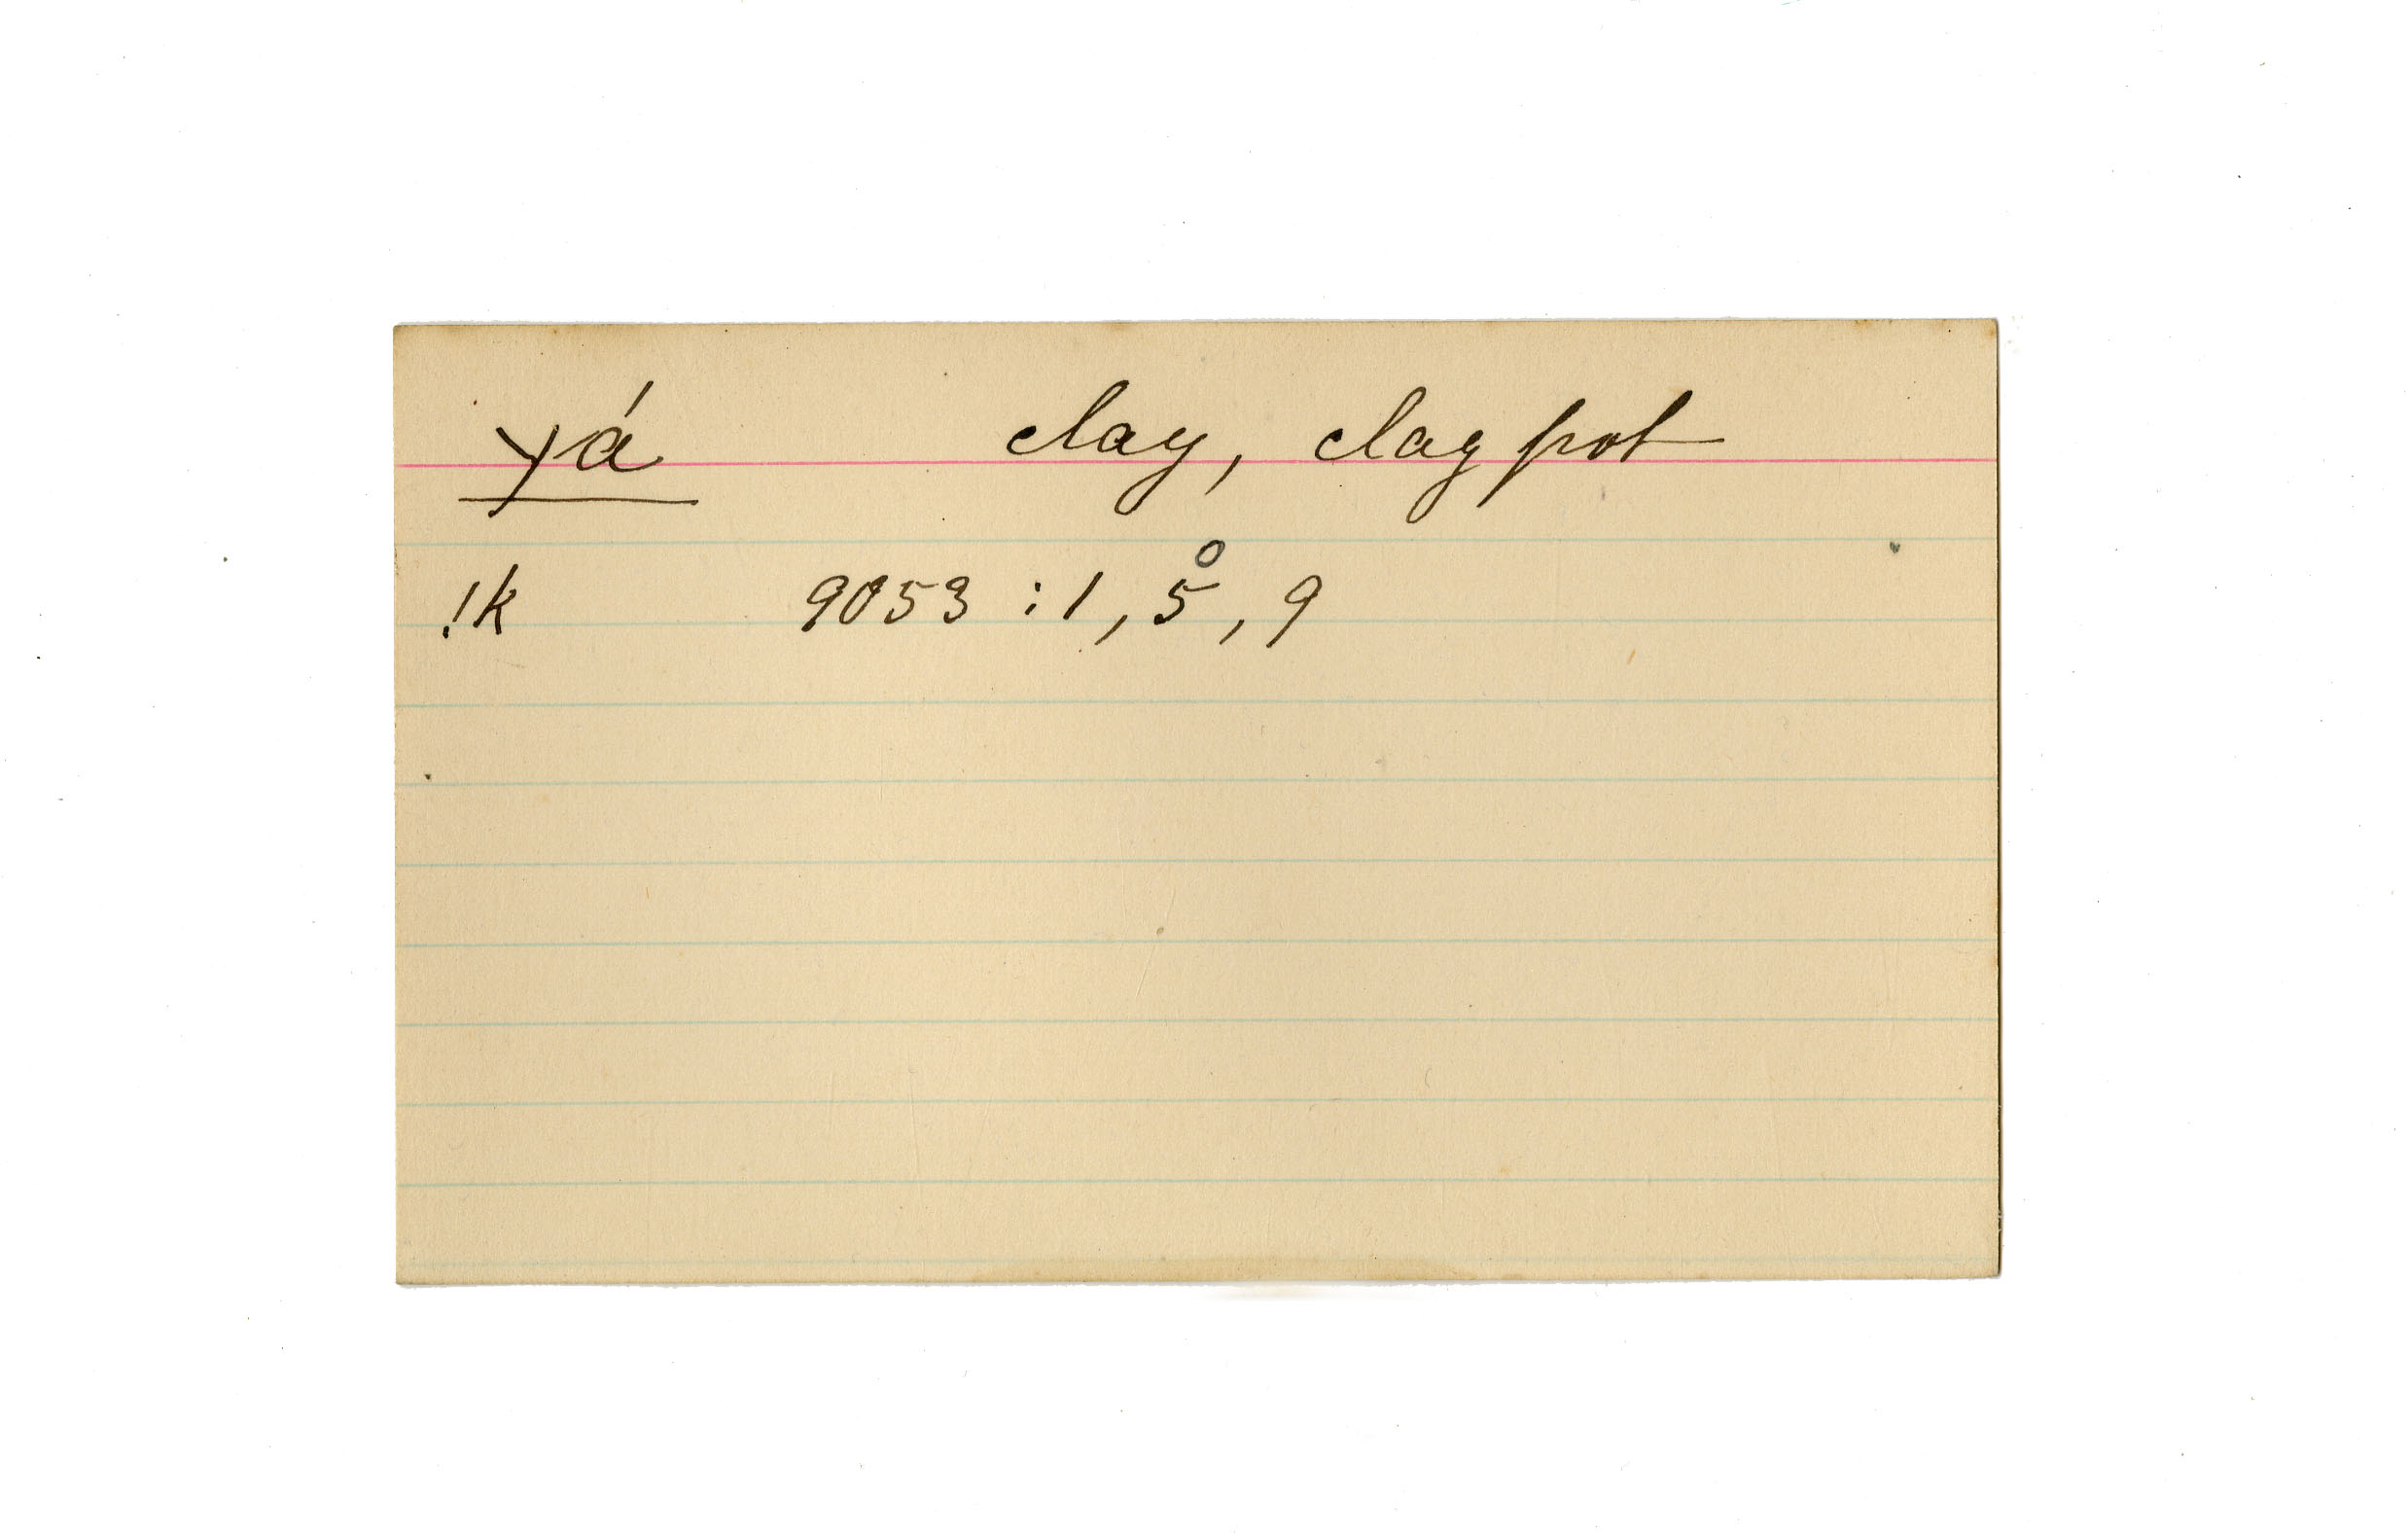 yá clay, clay pot
!k 9053 : 1, 5̊, 9